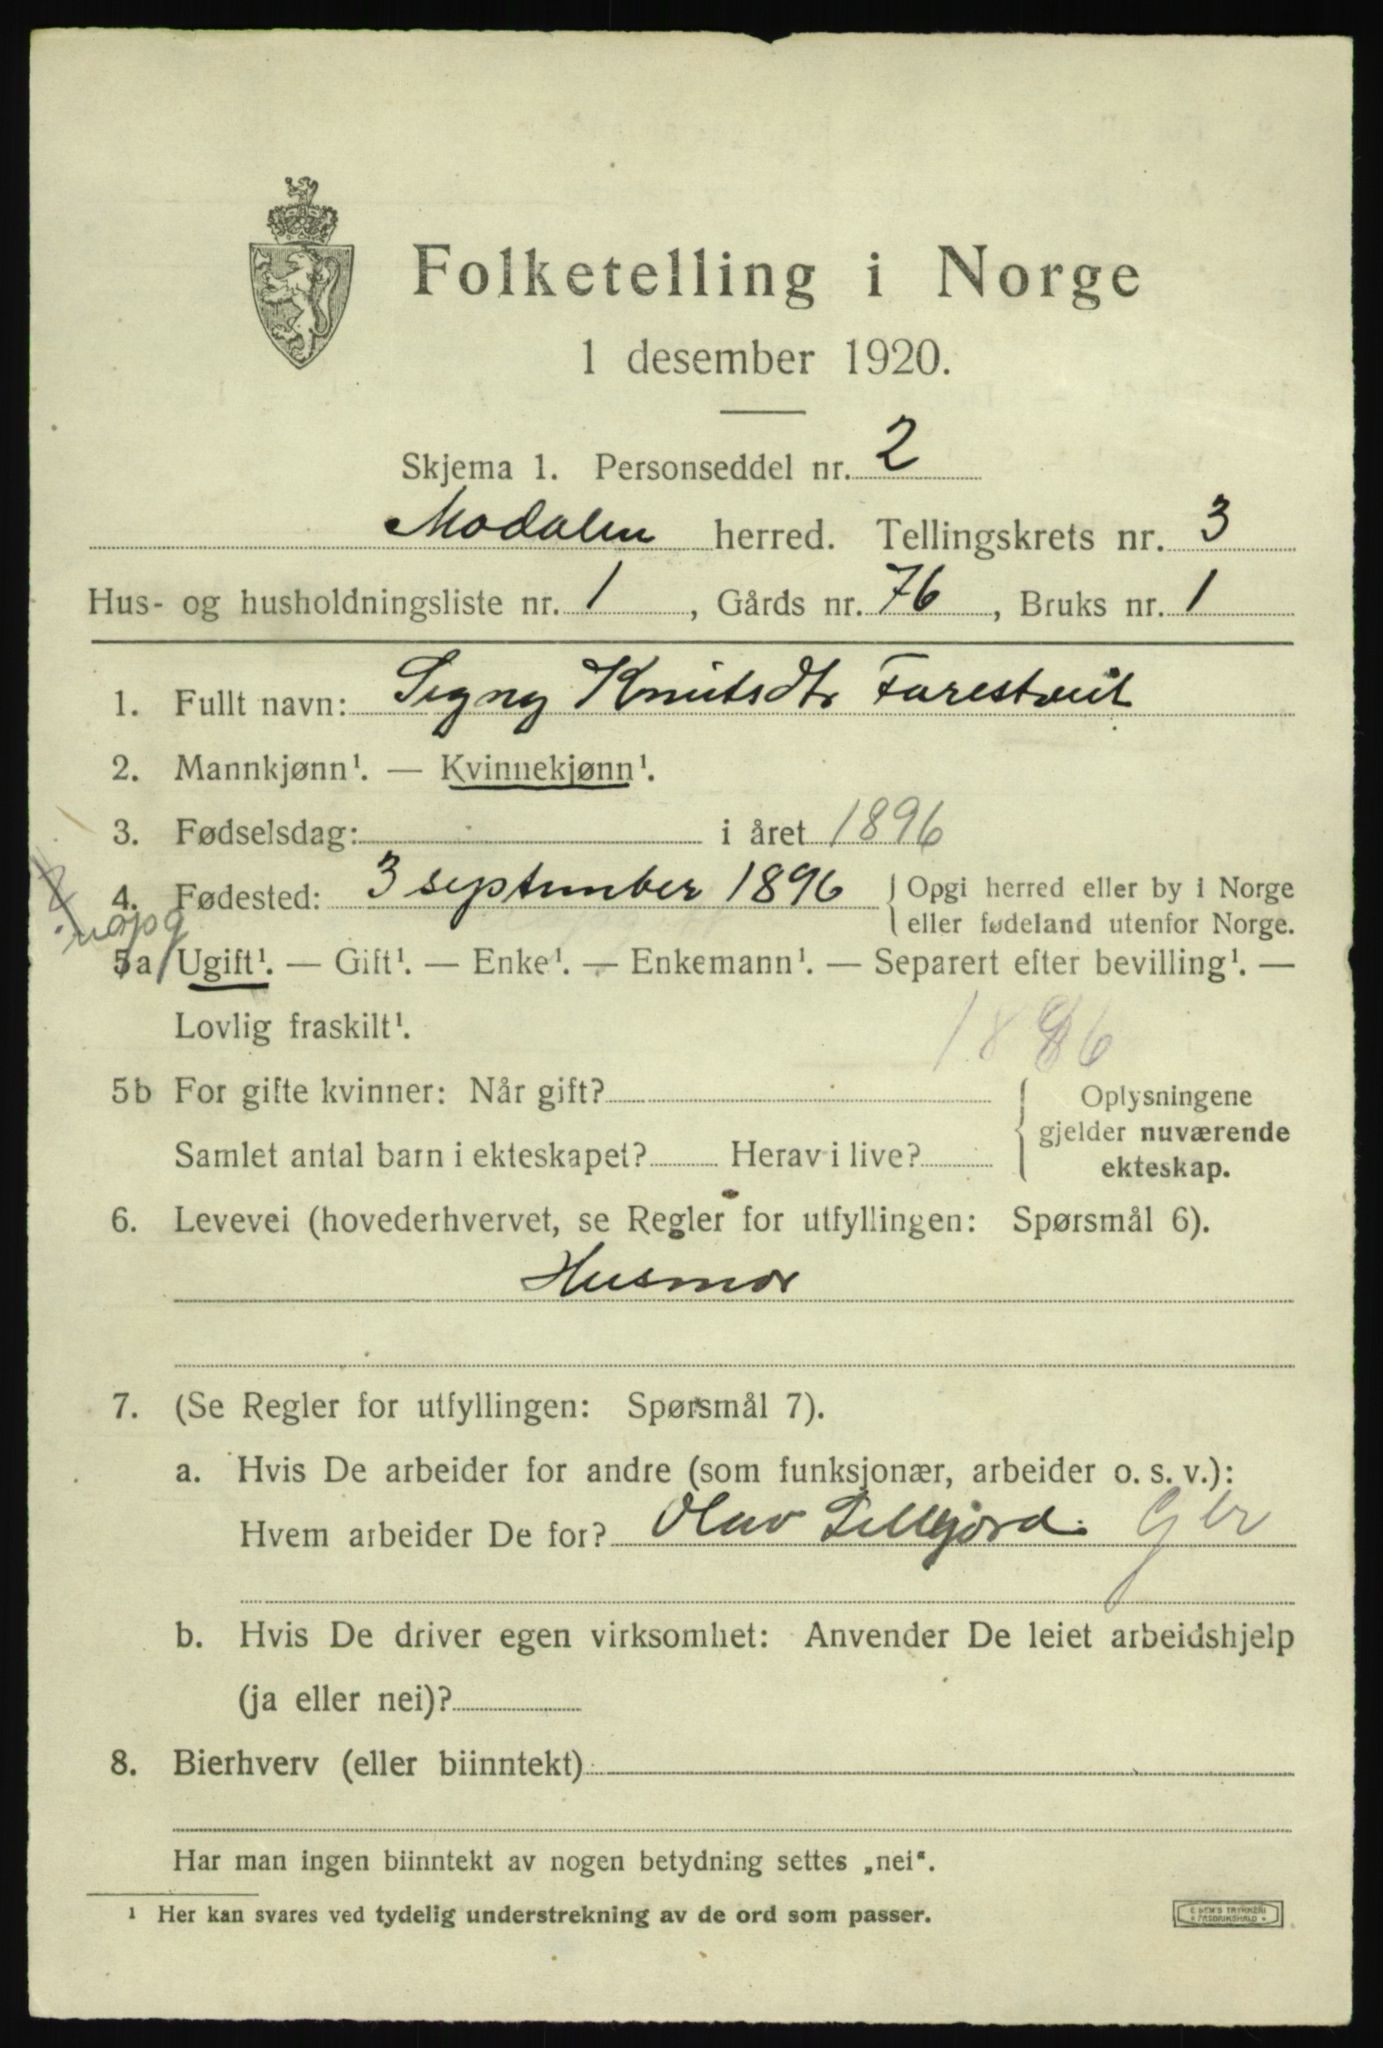 Folketelling i Norge
1 desember 1920.
Skjema 1. Personseddel nr. 2
Modalen herred. Tellingskrets nr. 3
Hus- og husholdningsliste nr. 1, Gårds nr. 76, Bruks nr. 1
1. Fullt navn: Signy Knutsdtr Farestveit
2. Mannkjønn¹. — Kvinnekjønn¹.
3. Fødselsdag: i året 1896
4. Fødested: 3 september 1896 { Opgi herred eller by i Norge
eller fødeland utenfor Norge.
uopg
5a Ugift¹. — Gift¹. — Enke¹. — Enkemann¹. — Separert efter bevilling¹. —
Lovlig fraskilt¹.
5b For gifte kvinner: Når gift? { Oplysningene
gjelder nuværende
Samlet antal barn i ekteskapet? Herav i live?
ekteskap.
6. Levevei (hovederhvervet, se Regler for utfyllingen: Spørsmål 6).
Husmor
7. (Se Regler for utfyllingen: Spørsmål 7).
a. Hvis De arbeider for andre (som funksjonær, arbeider o. s. v.):
Hvem arbeider De for? Olav
b. Hvis De driver egen virksomhet: Anvender De leiet arbeidshjelp
(ja eller nei)?
8. Bierhverv (eller biinntekt)
Har man ingen biinntekt av nogen betydning settes „nei“.
¹ Her kan svares ved tydelig understrekning av de ord som passer.